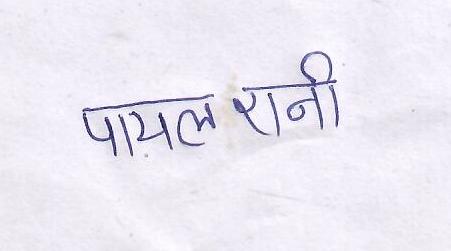 पायल रानी